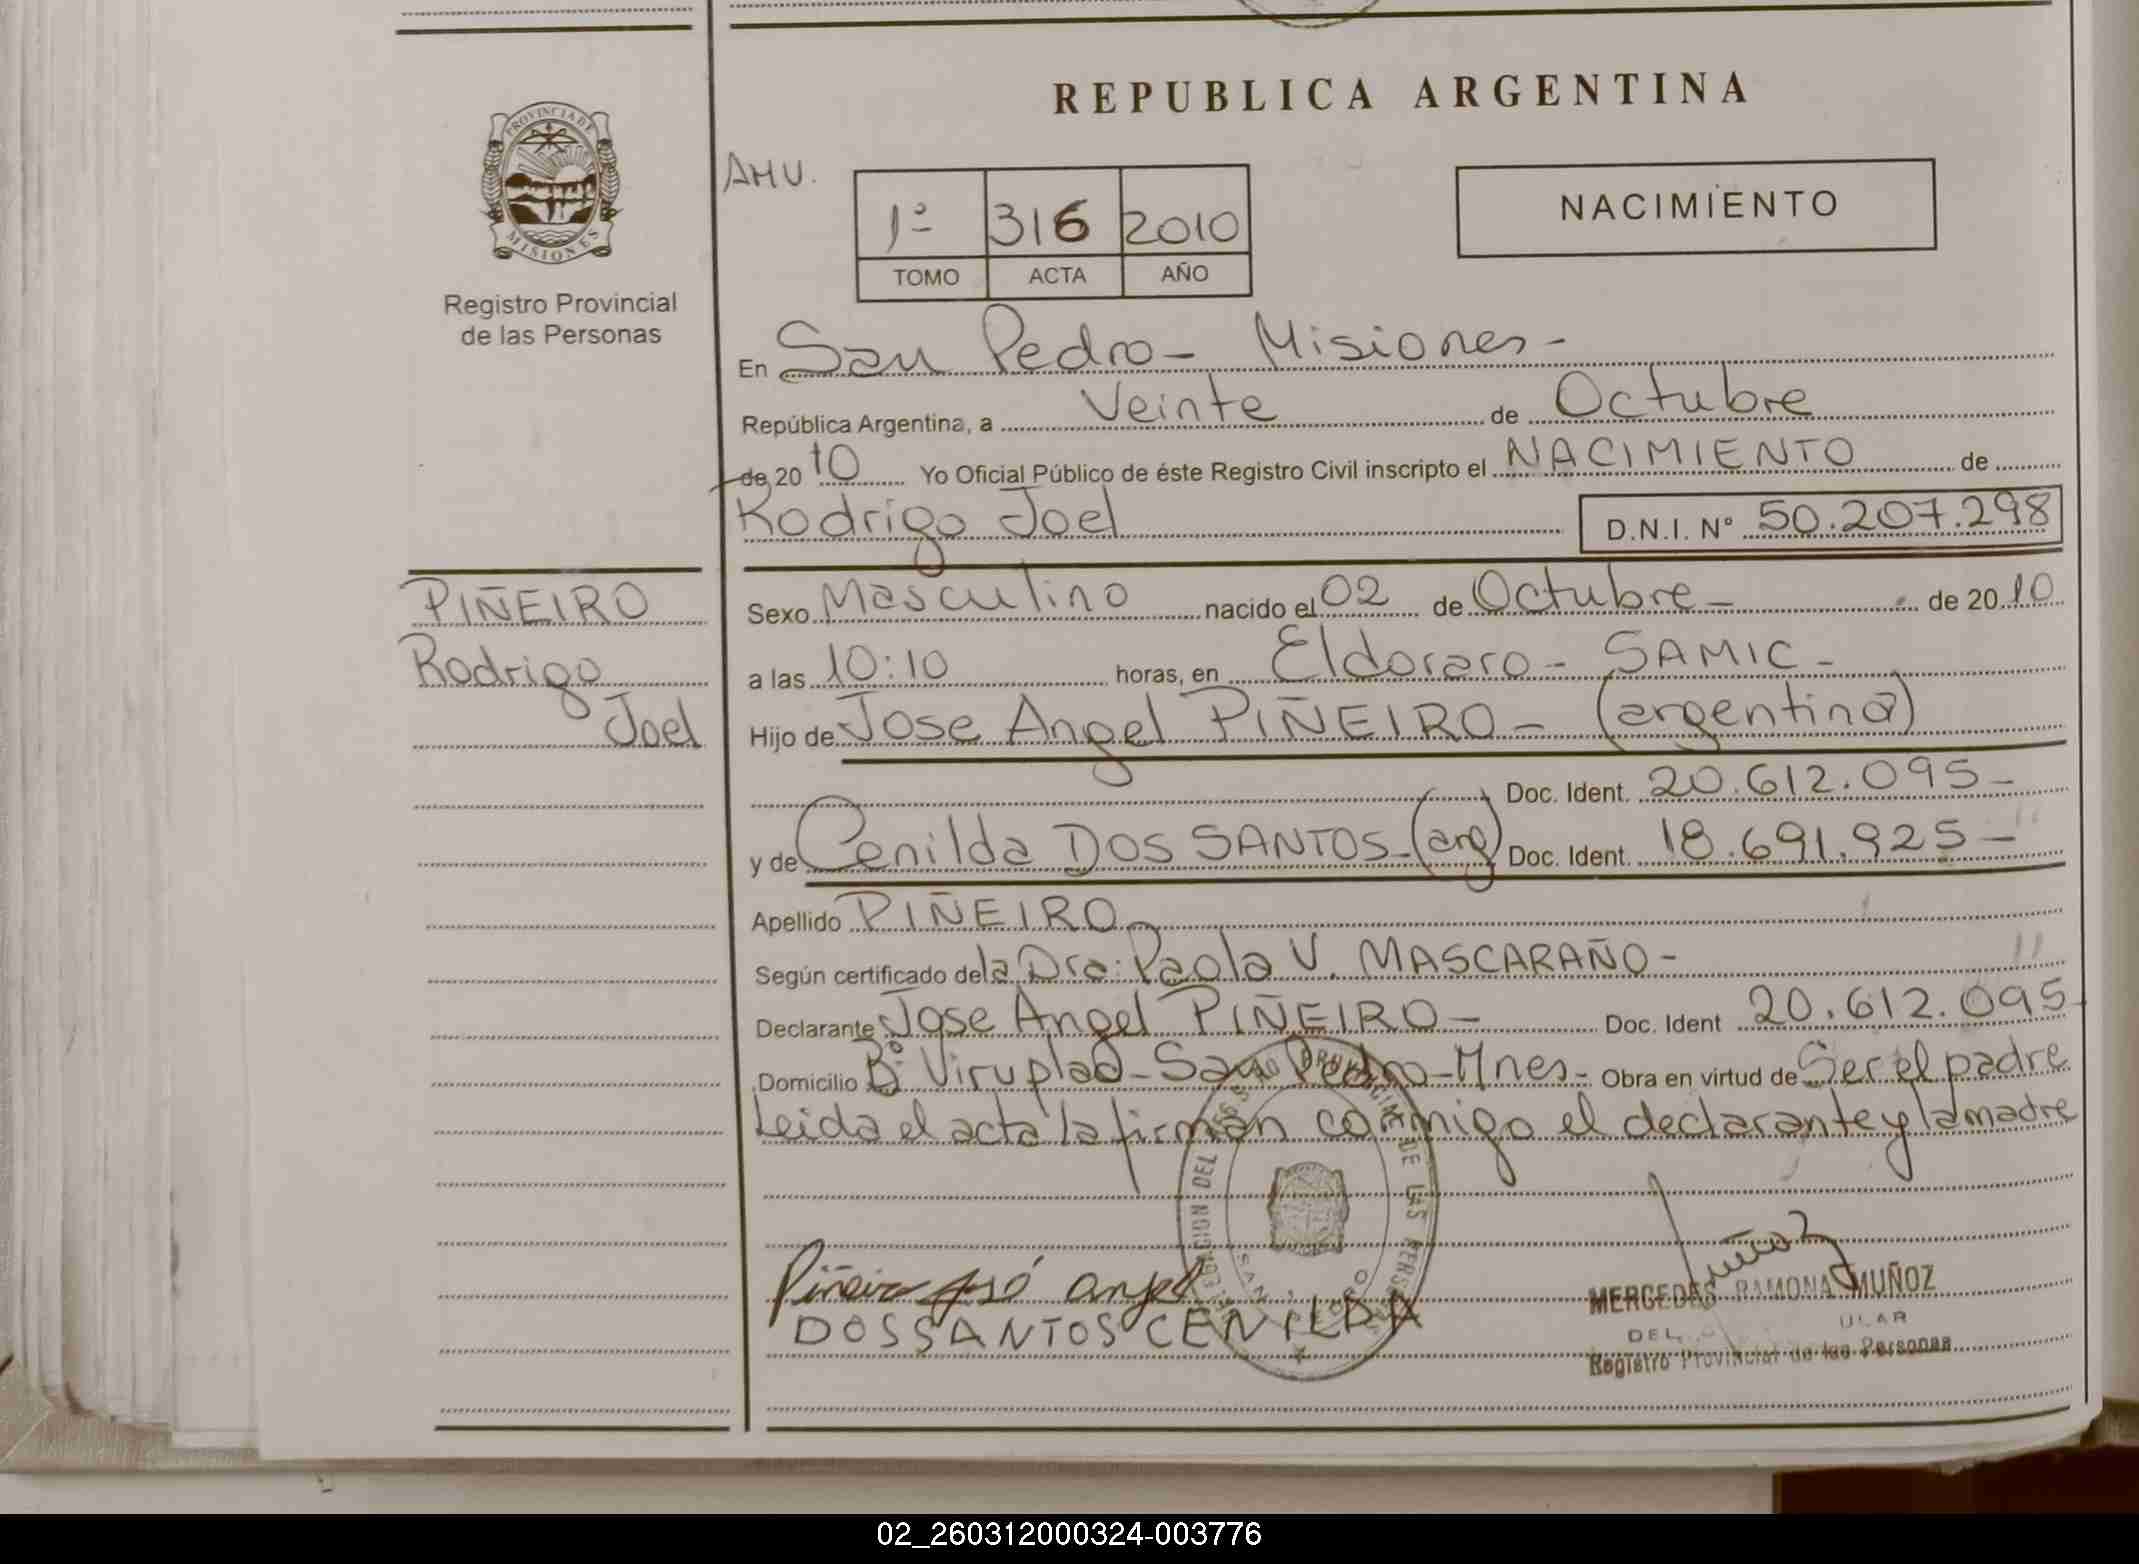 REPUBLICA ARGENTINA
PROVINCIA DE
MISIONES
Registro Provincial
de las Personas
AHU.
1º 316 2010
TOMO ACTA AÑO
NACIMIENTO
En San Pedro - Misiones -
República Argentina, a Veinte de Octubre
de 2010 Yo Oficial Público de éste Registro Civil inscripto el NACIMIENTO de
Rodrigo Joel D.N.I. Nº 50.207.298
PIÑEIRO
Rodrigo
Joel
Sexo Masculino nacido el 02 de Octubre - de 2010
a las 10:10 horas, en Eldoraro - SAMIC -
Hijo de Jose Angel PIÑEIRO - (argentina)
Doc. Ident. 20.612.095 -
y de Cenilda DOS SANTOS - (arg) Doc. Ident. 18.691.925 -
Apellido PIÑEIRO
Según certificado de la Dra: Paola V. MASCARAÑO -
Declarante Jose Angel PIÑEIRO - Doc. Ident 20.612.095 -
Domicilio Bº Viruplad - San Pedro - Mnes - Obra en virtud de Ser el padre
Leida el acta la firman conmigo el declarante y la madre
Piñeiro José angel
DOS SANTOS CENILDA
Muñoz
MERCEDES RAMONA MUÑOZ
Registro Provincial de las Personas
02_260312000324-003776